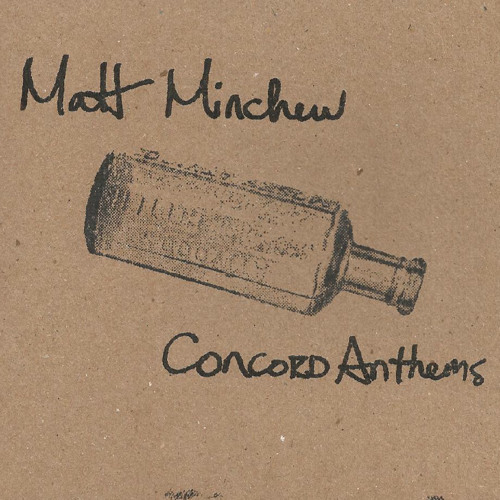 Matt Minchew
Concord Anthems